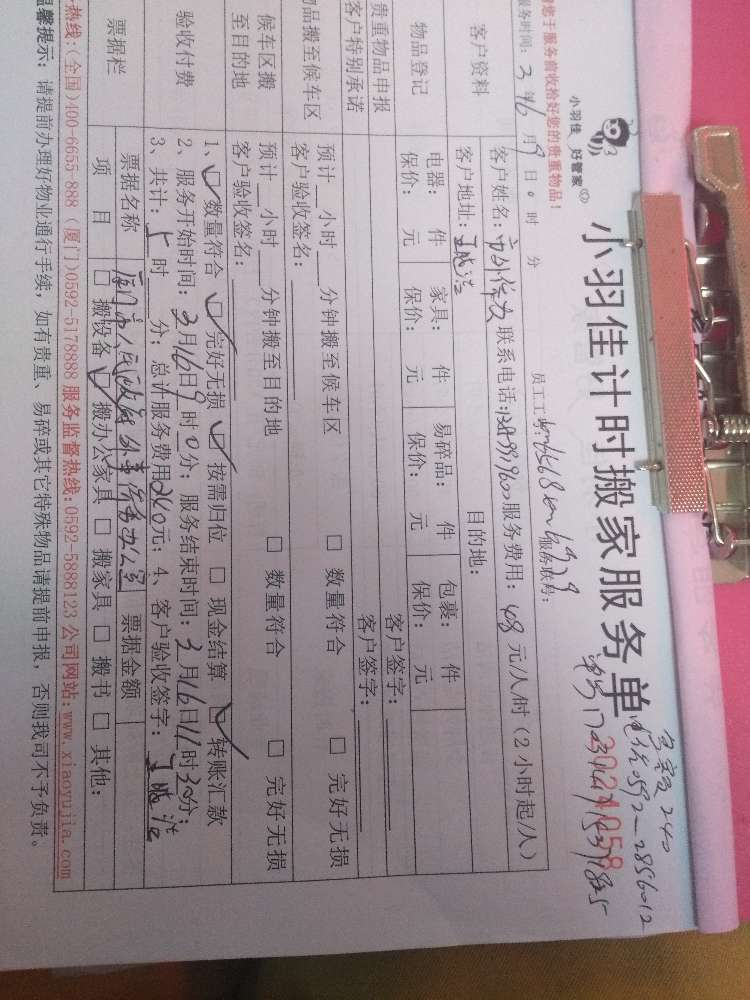 小羽佳 好管家
小羽佳计时搬家服务单
3021058
请您于服务前收拾好您的贵重物品!
服务时间: 3月16日9时 分
员工工号: 服务账号:
客户资料
客户姓名: 市外侨办 联系电话: 服务费用: 48元/人/时(2小时起/人)
客户地址: 目的地:
物品登记
电器: 件 家具: 件 易碎品: 件 包裹: 件
保价: 元 保价: 元 保价: 元 保价: 元
贵重物品申报 客户签字:
客户特别承诺 客户签字:
物品搬至候车区
预计 小时 分钟搬至候车区 □ 数量符合 □ 完好无损
客户验收签名:
候车区搬至目的地
预计 小时 分钟搬至目的地 □ 数量符合 □ 完好无损
客户验收签名:
验收付费
1、☑ 数量符合 ☑ 完好无损 ☑ 按需归位 □ 现金结算 ☑ 转账汇款
2、服务开始时间: 3月16日9时0分; 服务结束时间: 3月16日11时30分;
3、共计: 5时 分; 总计服务费用240元; 4、客户验收签字:
票据栏
票据名称 厦门市人民政府外事侨务办公室 票据金额
项 目 □ 搬设备 ☑ 搬办公家具 □ 搬家具 □ 搬书 □ 其他:
热线:(全国)400-6655-888 (厦门)0592-5178888 服务监督热线:0592-5888123 公司网站:www.xiaoyujia.com
温馨提示: 请提前办理好物业通行手续, 如有贵重、易碎或其它特殊物品请提前申报, 否则我司不予负责。